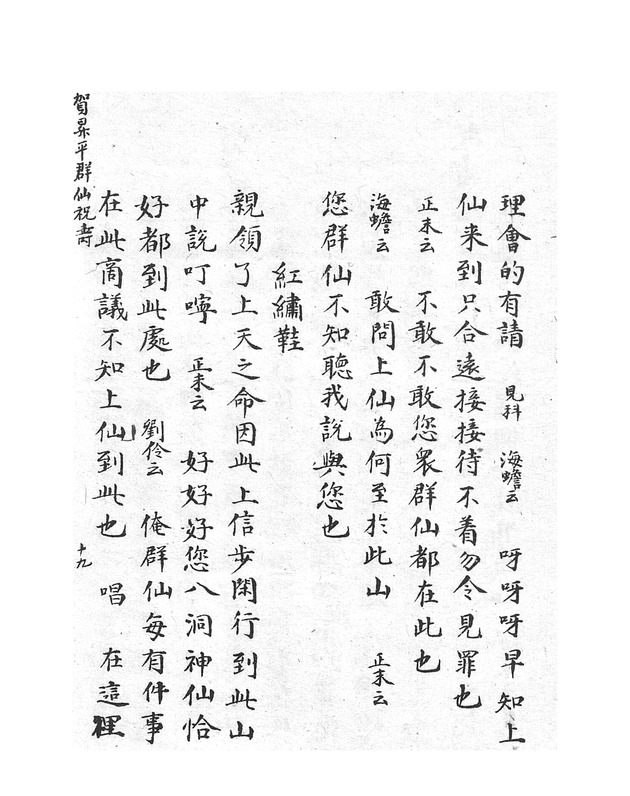 理會的有請 見科 海蟾云 呀呀呀早知上
仙来到只合遠接接待不着勿令見罪也
正末云 不敢不敢您衆群仙都在此也
海蟾云 敢問上仙為何至於此山 正末云
您群仙不知聽我說與您也
紅繡鞋
親領了上天之命因此上信步閑行到此山
中說叮嚀 正末云 好好好您八洞神仙恰
好都到此處也 劉伶云 俺群仙每有件事
在此商議不知上仙到此也 唱 在這裡
賀昇平群仙祝壽
十九